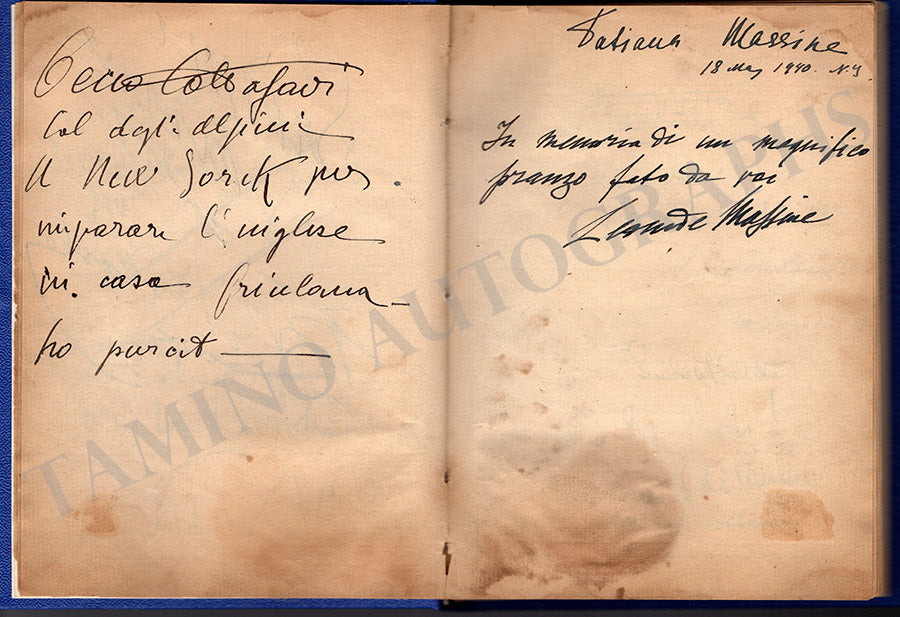 Col degli alpini
A New Jorck per
imparare l'inglese
in casa friulana
ho purcit
Tatiana Massine
18 May 1940. N.Y.
In memoria di un magnifico
pranzo fato da voi
Leonide Massine
TAMINO AUTOGRAPHS